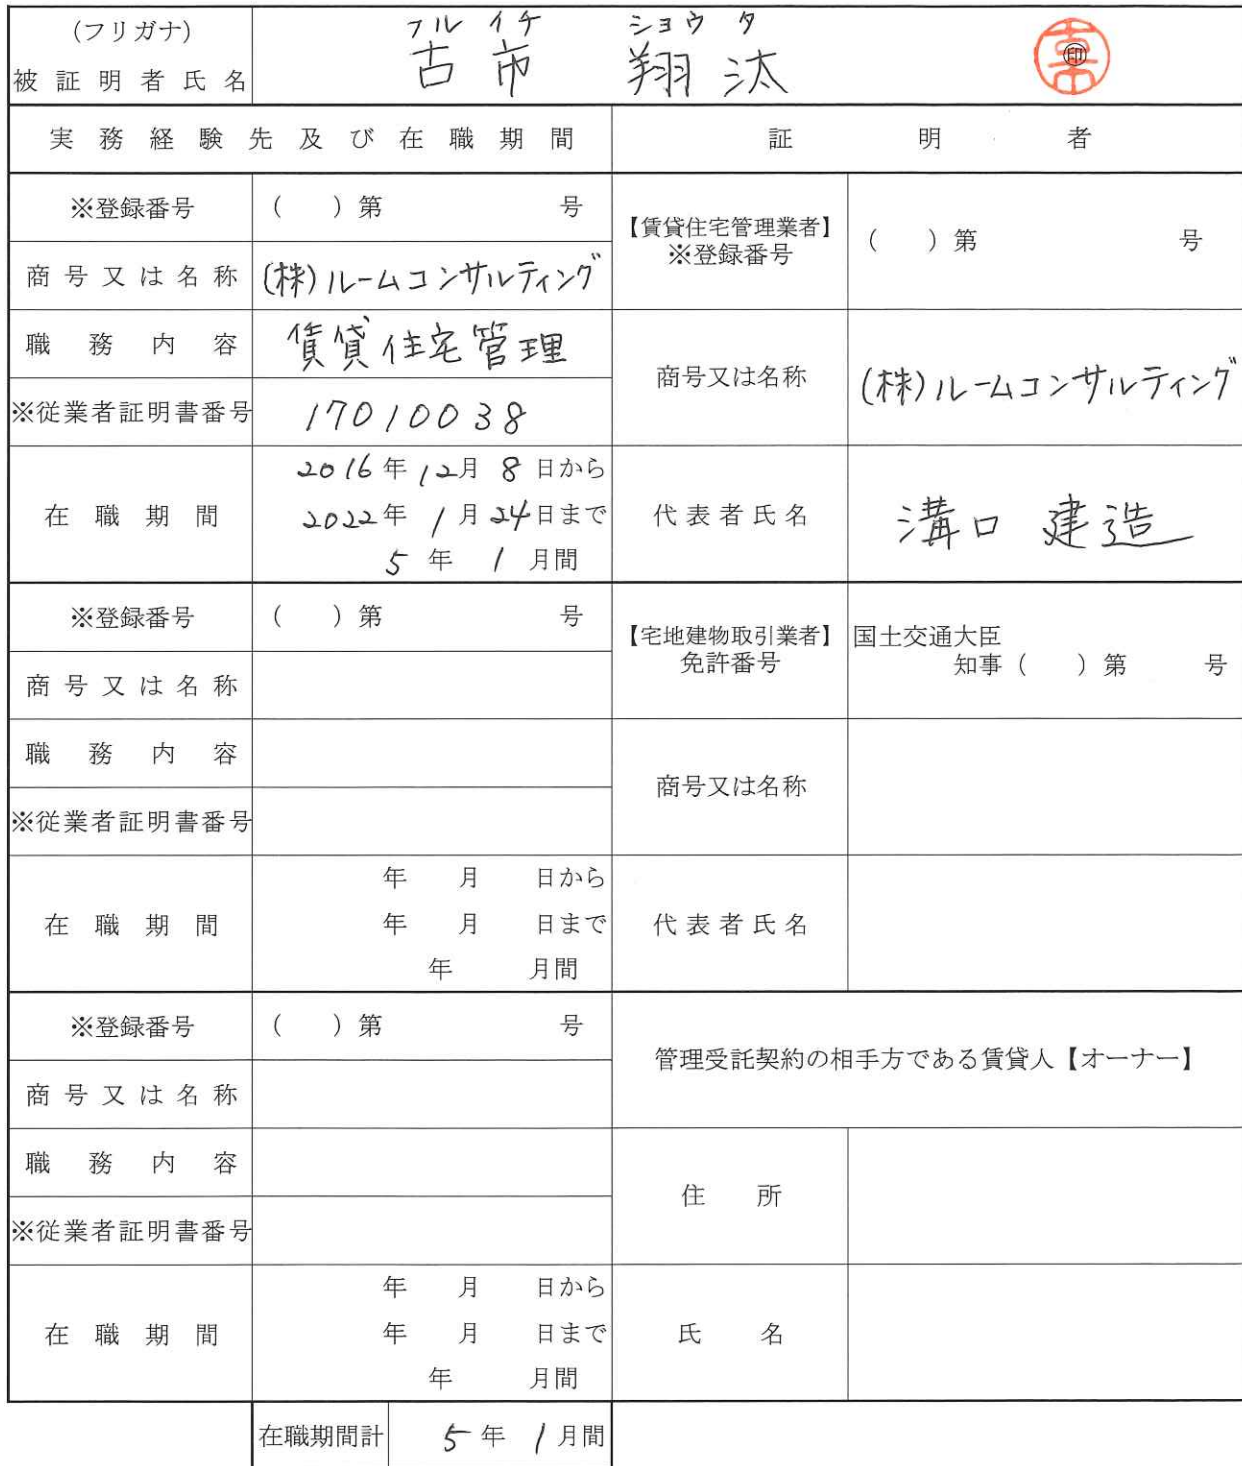 (フリガナ) フルイチ ショウタ
被証明者氏名 古市 翔汰 ㊞
実務経験先及び在職期間 証明者
※登録番号 ( )第 号
【賃貸住宅管理業者】
※登録番号 ( )第 号
商号又は名称 (株)ルームコンサルティング
職務内容 賃貸住宅管理
商号又は名称 (株)ルームコンサルティング
※従業者証明書番号 17010038
在職期間 2016年12月8日から
2022年1月24日まで
5年1月間
代表者氏名 溝口 建造
※登録番号 ( )第 号
【宅地建物取引業者】 国土交通大臣
免許番号 知事( )第 号
商号又は名称
職務内容
商号又は名称
※従業者証明書番号
在職期間 年 月 日から
年 月 日まで
年 月間
代表者氏名
※登録番号 ( )第 号
管理受託契約の相手方である賃貸人【オーナー】
商号又は名称
職務内容
住所
※従業者証明書番号
在職期間 年 月 日から
年 月 日まで
年 月間
氏名
在職期間計 5年1月間